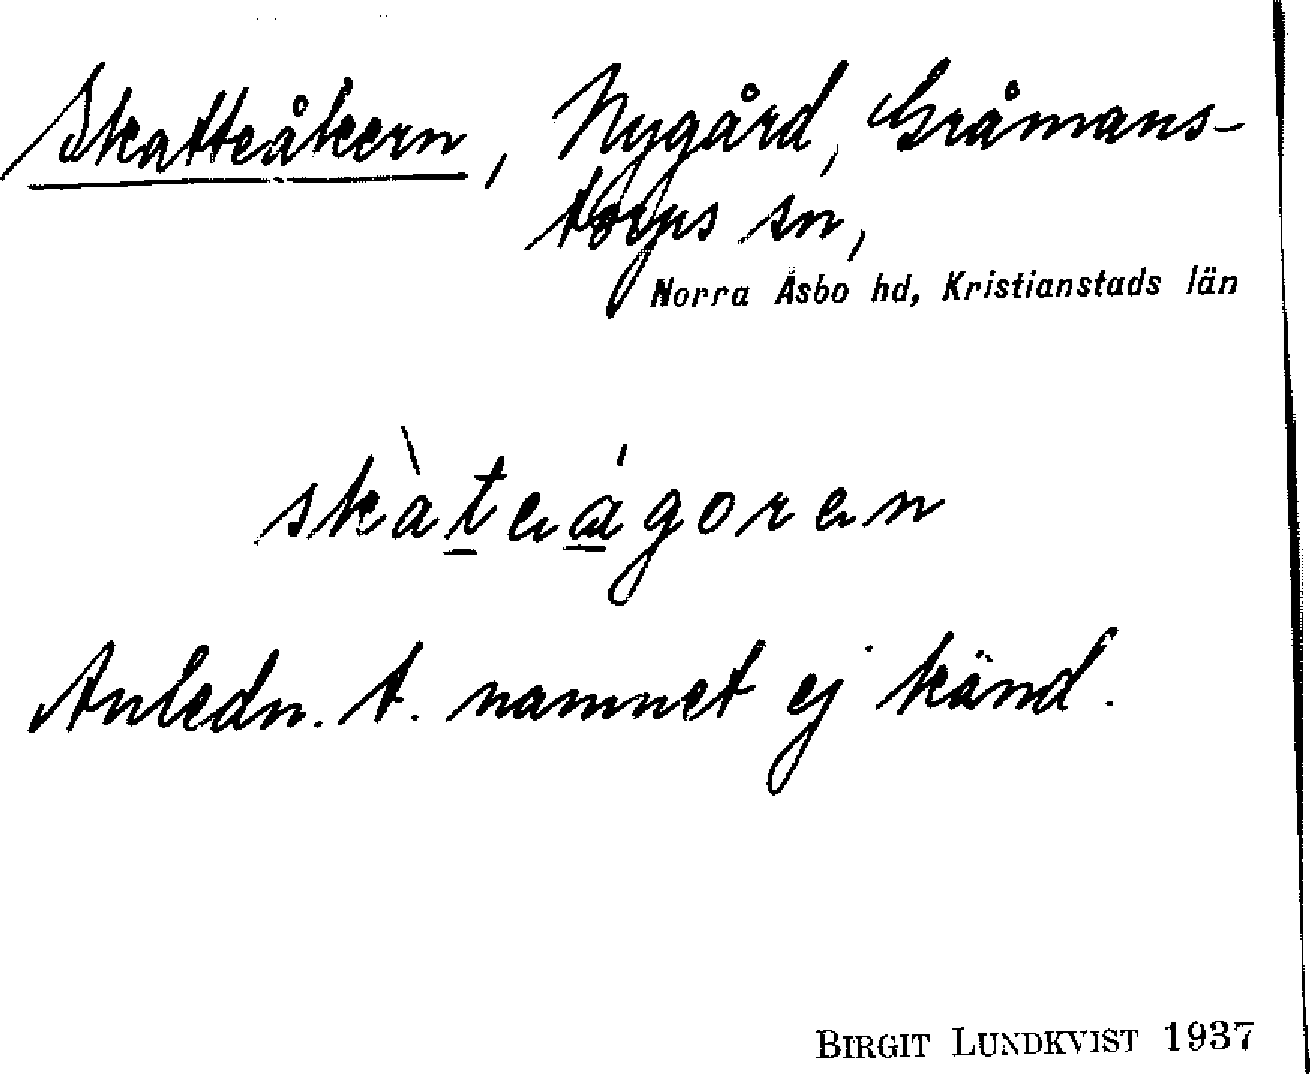 Skatteåkern, Nygård, Gråmans-
torps sn,
Norra Åsbo hd, Kristianstads län
skàteágoren
Anledn. t. namnet ej känd.
BIRGIT LUNDKVIST 1937